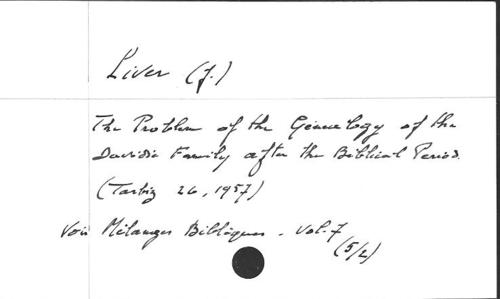 Liver (J.)
The Problem of the Genealogy of the
Davidic Family after the Biblical Period.
(Tarbiz 26, 1957)
Voir Mélanges Bibliques - vol. 7
(5/2)